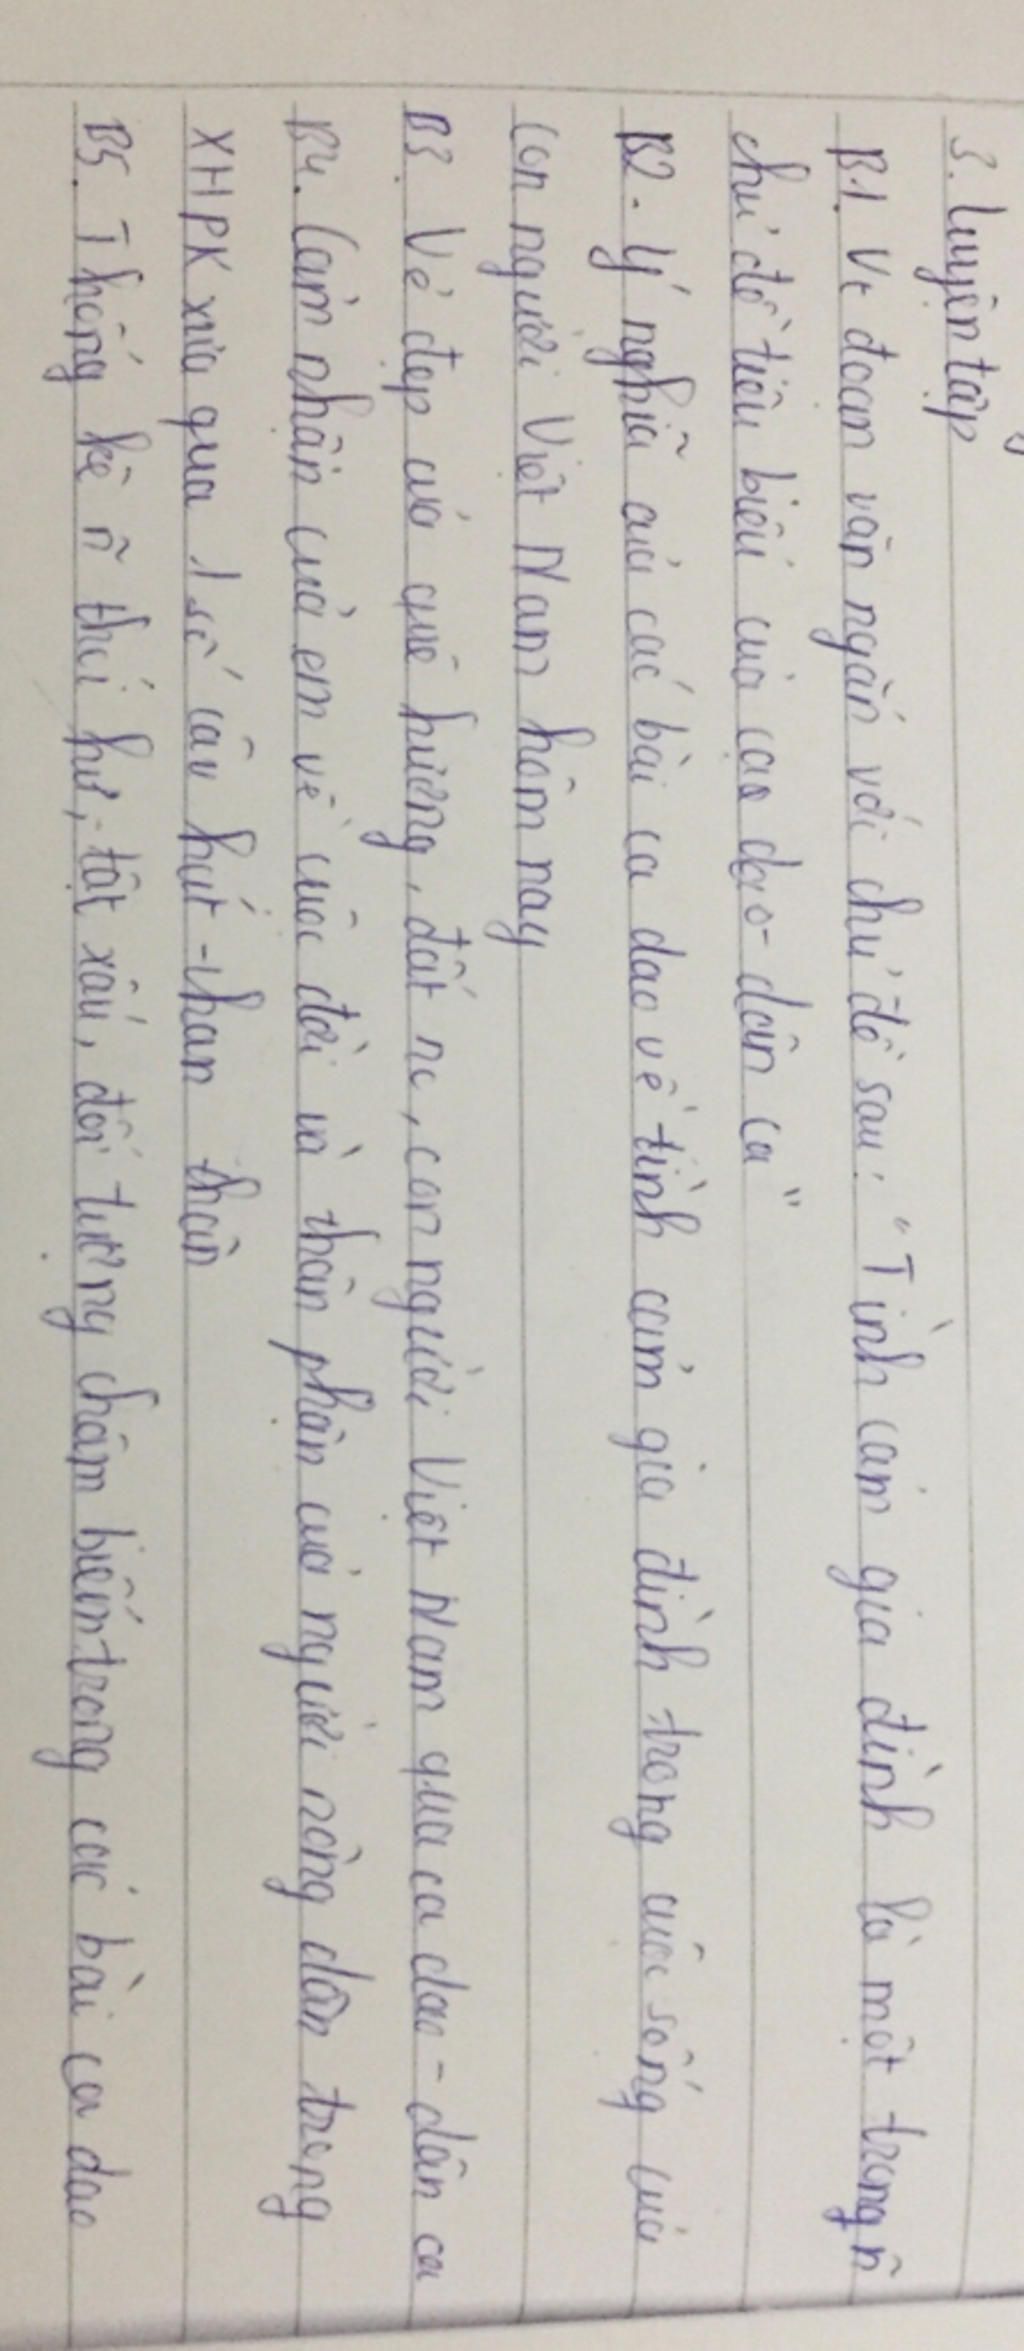 3. Luyện tập
B1. Vt đoạn văn ngắn với chủ đề sau: "Tình cảm gia đình là một trong n~
chủ đề tiêu biểu của cao dao - dân ca"
B2. Ý nghĩa của các bài ca dao về tình cảm gia đình trong cuộc sống của
con người Việt Nam hôm nay
B3. Vẻ đẹp của quê hương, đất nc, con người Việt Nam qua ca dao - dân ca
B4. Cảm nhận của em về cuộc đời và thân phận của người nông dân trong
XHPK xưa qua 1 số câu hát - than thân
B5. Thống kê n~ thói hư, tật xấu, đối tượng châm biếm trong các bài ca dao